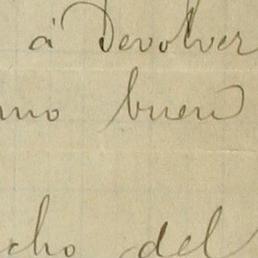 á Devolver
mo buen
cho del